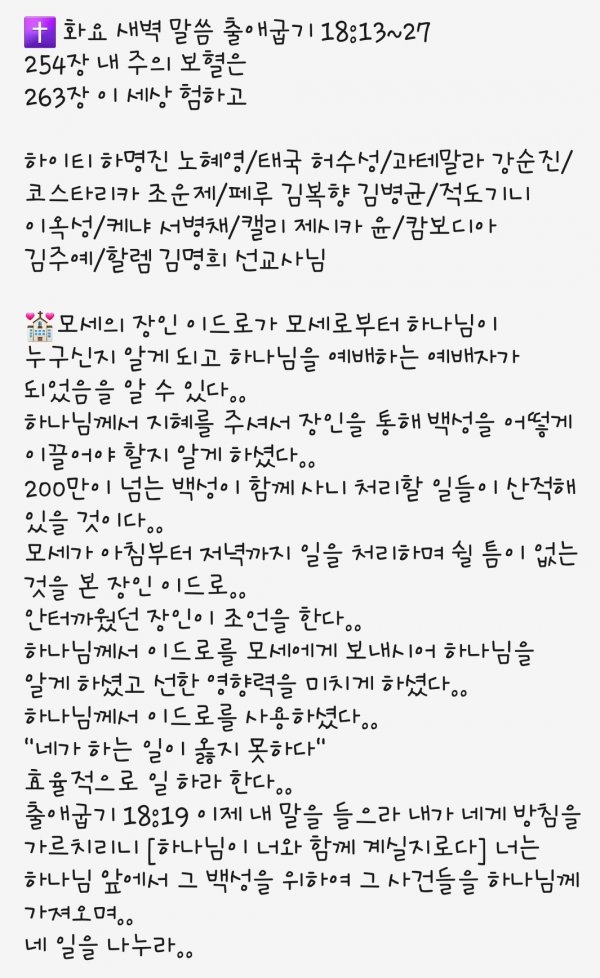 ✝️ 화요 새벽 말씀 출애굽기 18:13~27
254장 내 주의 보혈은
263장 이 세상 험하고
하이티 하명진 노혜영/태국 허수성/과테말라 강순진/
코스타리카 조운제/페루 김복향 김병균/적도기니
이옥성/케냐 서병채/캘리 제시카 윤/캄보디아
김주예/할렘 김명희 선교사님
💒모세의 장인 이드로가 모세로부터 하나님이
누구신지 알게 되고 하나님을 예배하는 예배자가
되었음을 알 수 있다..
하나님께서 지혜를 주셔서 장인을 통해 백성을 어떻게
이끌어야 할지 알게 하셨다..
200만이 넘는 백성이 함께 사니 처리할 일들이 산적해
있을 것이다..
모세가 아침부터 저녁까지 일을 처리하며 쉴 틈이 없는
것을 본 장인 이드로..
안터까웠던 장인이 조언을 한다..
하나님께서 이드로를 모세에게 보내시어 하나님을
알게 하셨고 선한 영향력을 미치게 하셨다..
하나님께서 이드로를 사용하셨다..
"네가 하는 일이 옳지 못하다"
효율적으로 일 하라 한다..
출애굽기 18:19 이제 내 말을 들으라 내가 네게 방침을
가르치리니 [하나님이 너와 함께 계실지로다] 너는
하나님 앞에서 그 백성을 위하여 그 사건들을 하나님께
가져오며..
네 일을 나누라..